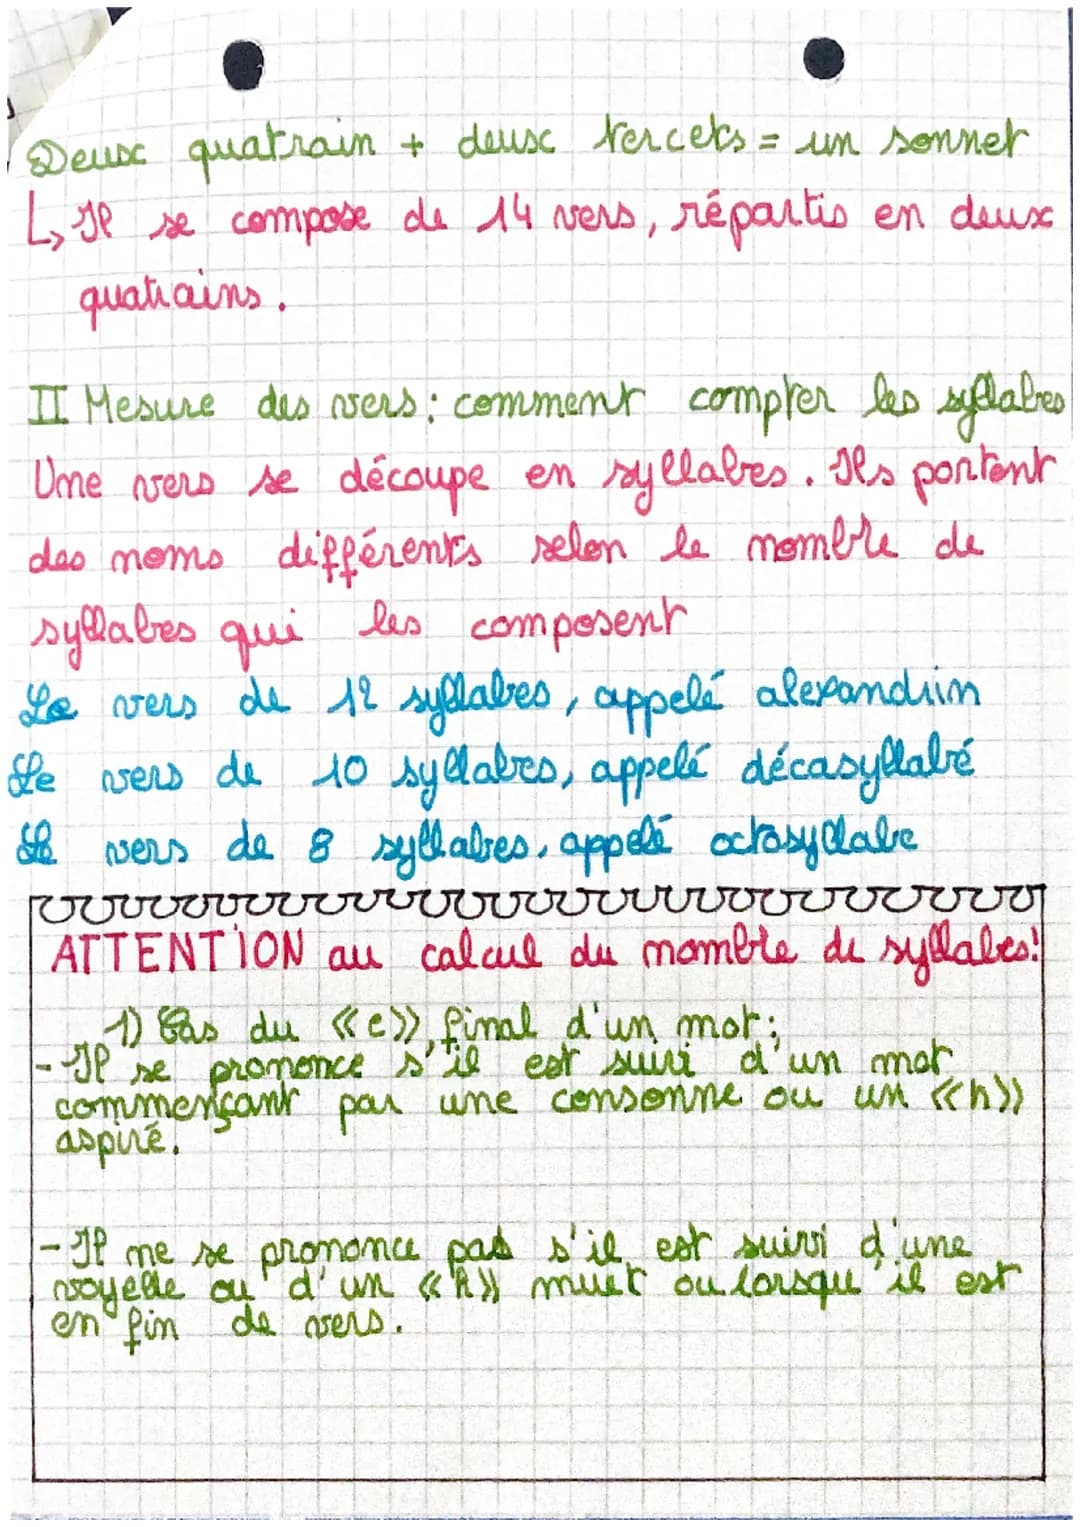 Deux quatrain + deux tercets = un sonnet
↳ Il se compose de 14 vers, répartis en deux
quatrains.
II Mesure des vers : comment compter les syllabes
Une vers se découpe en syllabes. Ils portent
des noms différents selon le nombre de
syllabes qui les composent
Le vers de 12 syllabes, appelé alexandrin
Le vers de 10 syllabes, appelé décasyllabé
Le vers de 8 syllabes, appelé octosyllabe
ATTENTION au calcul du nombre de syllabes!
1) Cas du «e», final d'un mot :
- Il se prononce s'il est suivi d'un mot
commençant par une consonne ou un «h»
aspiré.
- Il ne se prononce pas s'il est suivi d'une
voyelle ou d'un «h» muet ou lorsqu'il est
en fin de vers.